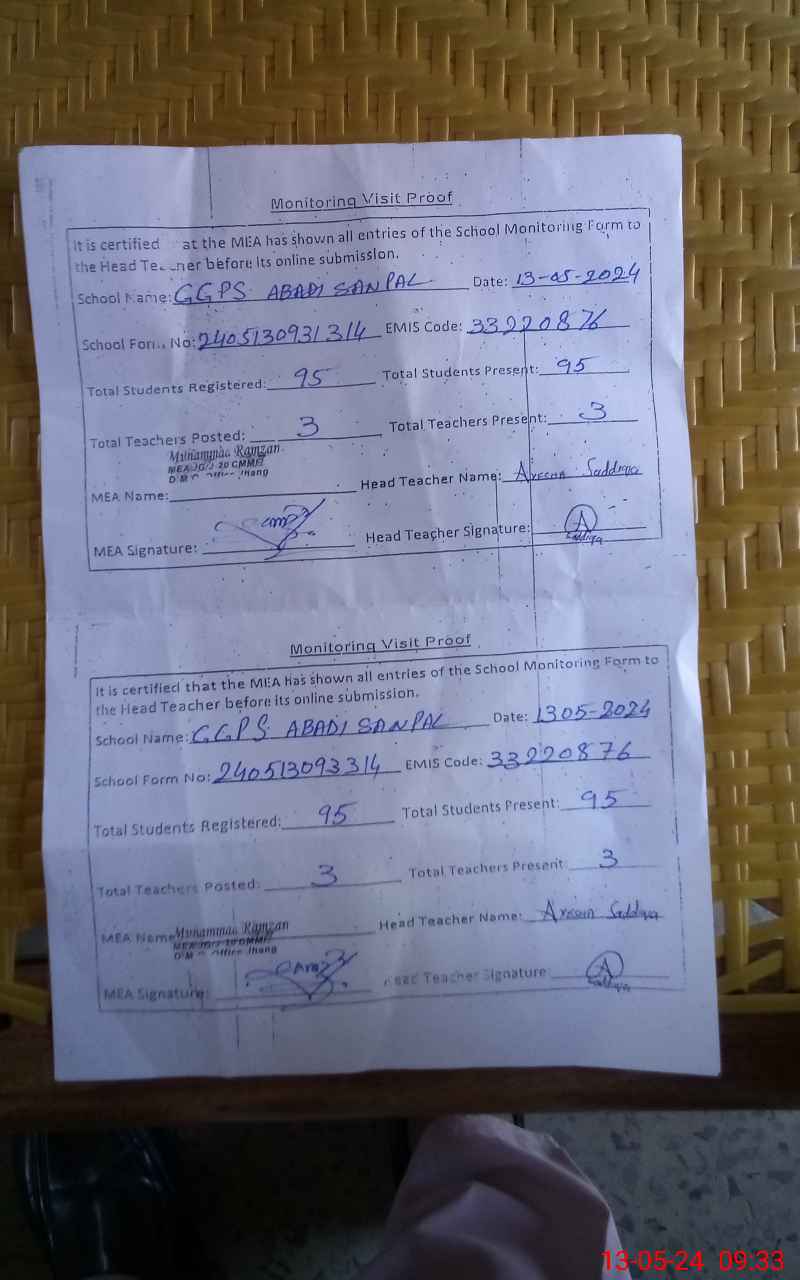 Monitoring Visit Proof
It is certified at the MEA has shown all entries of the School Monitoring Form to
the Head Te ner before its online submission.
School Name: GGPS ABADI SANPAL Date: 13-05-2024
School Form No: 2405130931314 EMIS Code: 33220876
Total Students Registered: 95 Total Students Present: 95
Total Teachers Posted: 3 Total Teachers Present: 3
Muhammad Ramzan
MEA
Office Jhang
MEA Name: Head Teacher Name: Saddiqa
MEA Signature: Head Teacher Signature: A
Saddiqa
Monitoring Visit Proof
It is certified that the MEA has shown all entries of the School Monitoring Form to
the Head Teacher before its online submission.
School Name: GGPS ABADI SANPAL Date: 1305-2024
School Form No: 240513093314 EMIS Code: 33220876
Total Students Registered: 95 Total Students Present: 95
Total Teachers Posted: 3 Total Teachers Present 3
MEA Name Muhammad Ramzan Head Teacher Name: Saddiqa
Office Jhang
MEA Signature: Head Teacher Signature A
Saddiqa
13-05-24 09:33